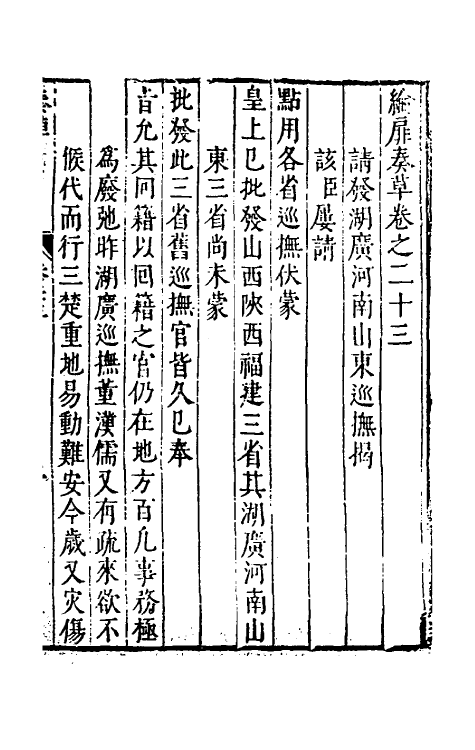 綸扉奏草卷之二十三
請發湖廣河南山東巡撫揭
該臣屢請
點用各省巡撫伏蒙
皇上已批發山西陝西福建三省其湖廣河南山
東三省尚未蒙
批發此三省舊巡撫官皆久已奉
旨允其回籍以回籍之官仍在地方百凡事務極
爲廢弛昨湖廣巡撫董漢儒又有疏來欲不
候代而行三楚重地易動難安今歲又灾傷